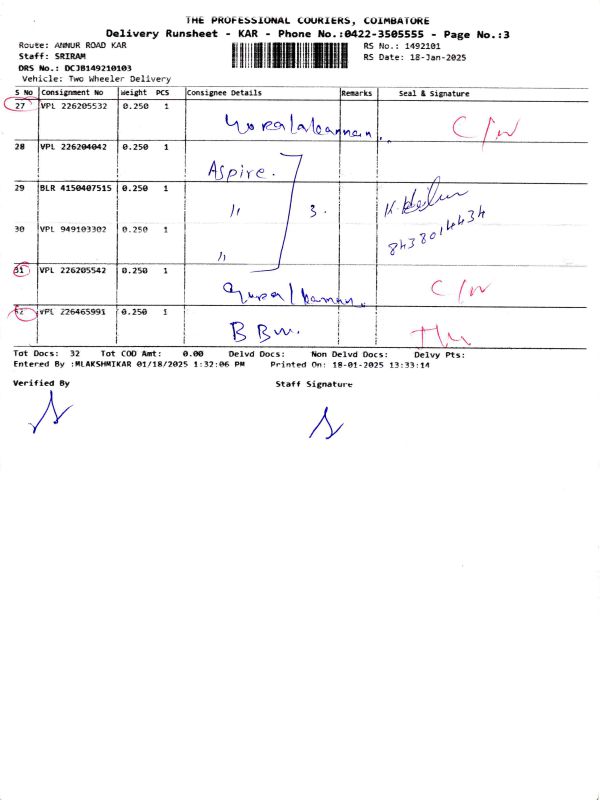 THE PROFESSIONAL COURIERS, COIMBATORE
Delivery Runsheet - KAR - Phone No.:0422-3505555 - Page No.:3
Route: ANNUR ROAD KAR RS No.: 1492101
Staff: SRIRAM RS Date: 18-Jan-2025
DRS No.: DCJB149210103
Vehicle: Two Wheeler Delivery
S No Consignment No Weight PCS Consignee Details Remarks Seal & Signature
27 VPL 226205532 0.250 1 C/W
28 VPL 226204042 0.250 1 Aspire.
29 BLR 4150407515 0.250 1 " 3.
8438014434
30 VPL 949103302 0.250 1 "
31 VPL 226205542 0.250 1 C/W
32 VPL 226465991 0.250 1
Tot Docs: 32 Tot COD Amt: 0.00 Delvd Docs: Non Delvd Docs: Delvy Pts:
Entered By :MLAKSHMIKAR 01/18/2025 1:32:06 PM Printed On: 18-01-2025 13:33:14
Verified By Staff Signature